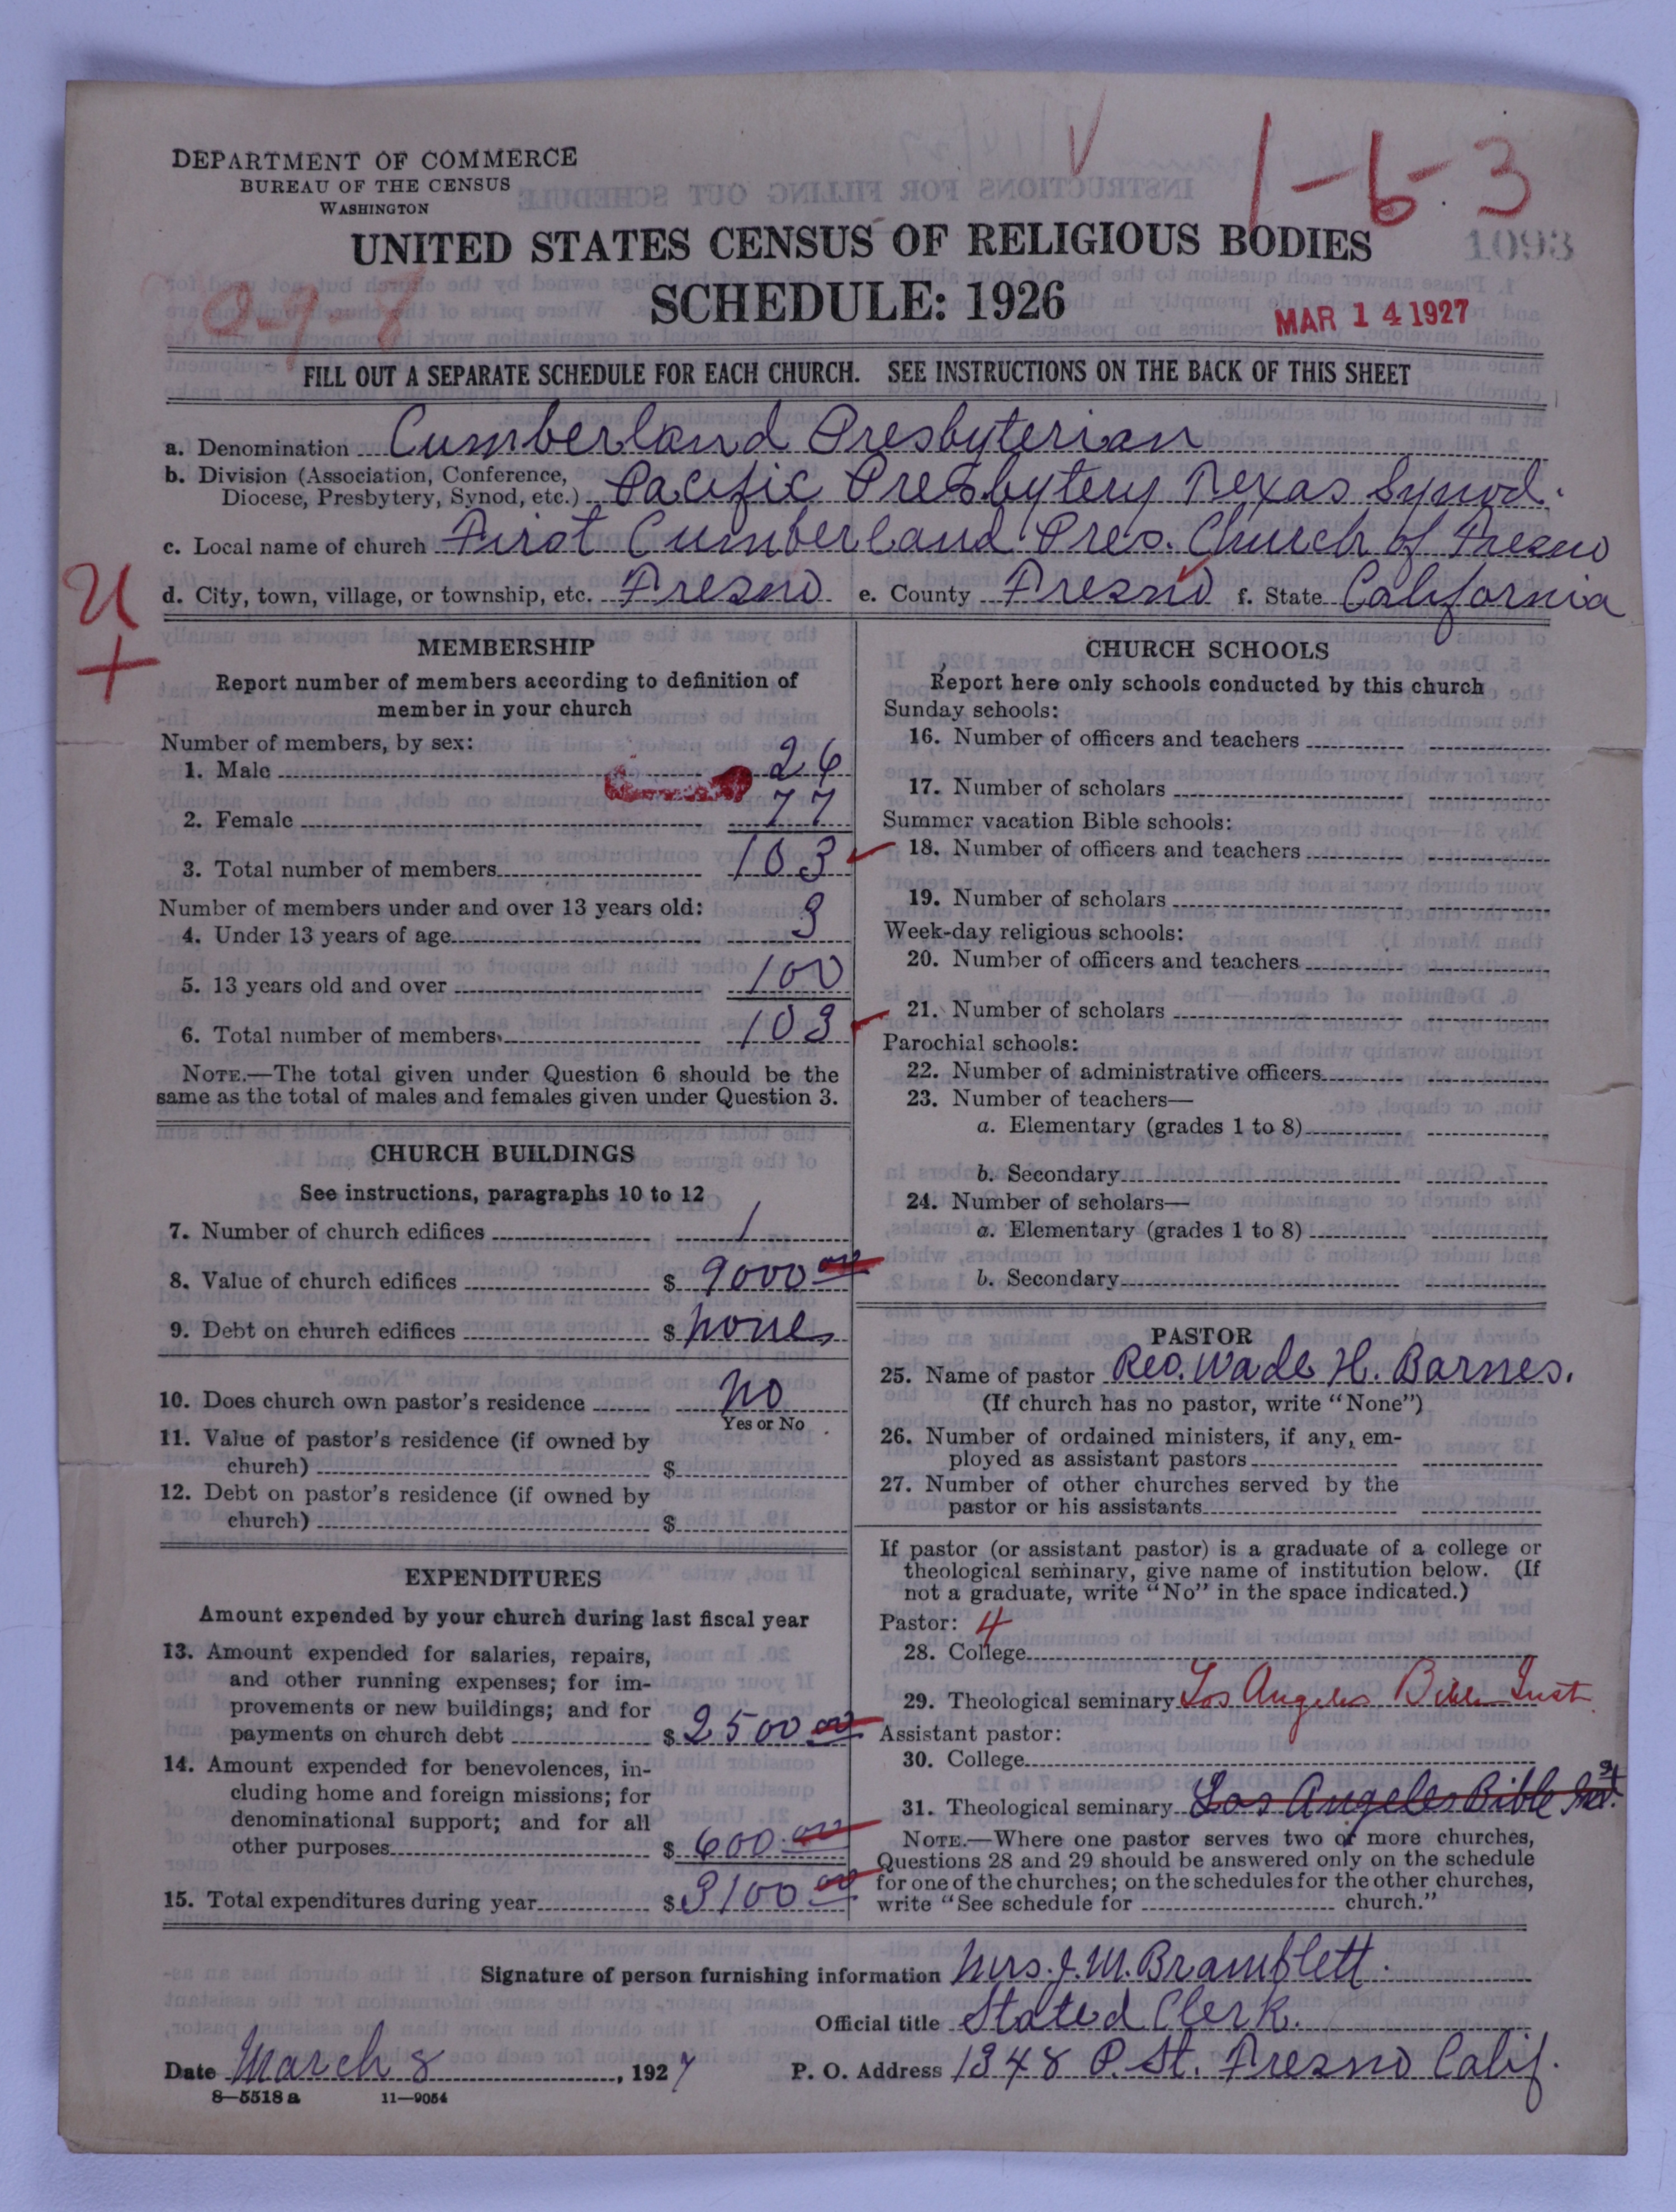 DEPARTMENT OF COMMERCE
BUREAU OF THE CENSUS
WASHINGTON
1-6-3
UNITED STATES CENSUS OF RELIGIOUS BODIES
1093
SCHEDULE: 1926
MAR 14 1927
FILL OUT A SEPARATE SCHEDULE FOR EACH CHURCH. SEE INSTRUCTIONS ON THE BACK OF THIS SHEET
a. Denomination Cumberland Presbyterian
b. Division (Association, Conference,
Diocese, Presbytery, Synod, etc.) Pacific Presbytery Texas Synod.
c. Local name of church First Cumberland Pres. Church of Fresno
d. City, town, village, or township, etc. Fresno e. County Fresno f. State California
U
+
MEMBERSHIP
Report number of members according to definition of
member in your church
Number of members, by sex:
1. Male 26
2. Female 77
3. Total number of members 103
Number of members under and over 13 years old:
4. Under 13 years of age 3
5. 13 years old and over 100
6. Total number of members 103
NOTE.—The total given under Question 6 should be the
same as the total of males and females given under Question 3.
CHURCH BUILDINGS
See instructions, paragraphs 10 to 12
7. Number of church edifices 1
8. Value of church edifices $ 9000 00
9. Debt on church edifices $ none
10. Does church own pastor's residence no
Yes or No
11. Value of pastor's residence (if owned by
church) $
12. Debt on pastor's residence (if owned by
church) $
EXPENDITURES
Amount expended by your church during last fiscal year
13. Amount expended for salaries, repairs,
and other running expenses; for im-
provements or new buildings; and for
payments on church debt $ 2500 00
14. Amount expended for benevolences, in-
cluding home and foreign missions; for
denominational support; and for all
other purposes $ 600.00
15. Total expenditures during year $ 3100.00
CHURCH SCHOOLS
Report here only schools conducted by this church
Sunday schools:
16. Number of officers and teachers
17. Number of scholars
Summer vacation Bible schools:
18. Number of officers and teachers
19. Number of scholars
Week-day religious schools:
20. Number of officers and teachers
21. Number of scholars
Parochial schools:
22. Number of administrative officers
23. Number of teachers—
a. Elementary (grades 1 to 8)
b. Secondary
24. Number of scholars—
a. Elementary (grades 1 to 8)
b. Secondary
PASTOR
25. Name of pastor Rev. Wade H. Barnes.
(If church has no pastor, write "None")
26. Number of ordained ministers, if any, em-
ployed as assistant pastors
27. Number of other churches served by the
pastor or his assistants
If pastor (or assistant pastor) is a graduate of a college or
theological seminary, give name of institution below. (If
not a graduate, write "No" in the space indicated.)
Pastor: 4
28. College
29. Theological seminary Los Angeles Bible Inst
Assistant pastor:
30. College
31. Theological seminary Los Angeles Bible Inst.
NOTE.—Where one pastor serves two or more churches,
Questions 28 and 29 should be answered only on the schedule
for one of the churches; on the schedules for the other churches,
write "See schedule for church."
Signature of person furnishing information Mrs. J. M. Bramblett.
Official title Stated Clerk.
Date March 8, 1927 P. O. Address 1348 P. St. Fresno Calif.
8—5518 a 11—9054